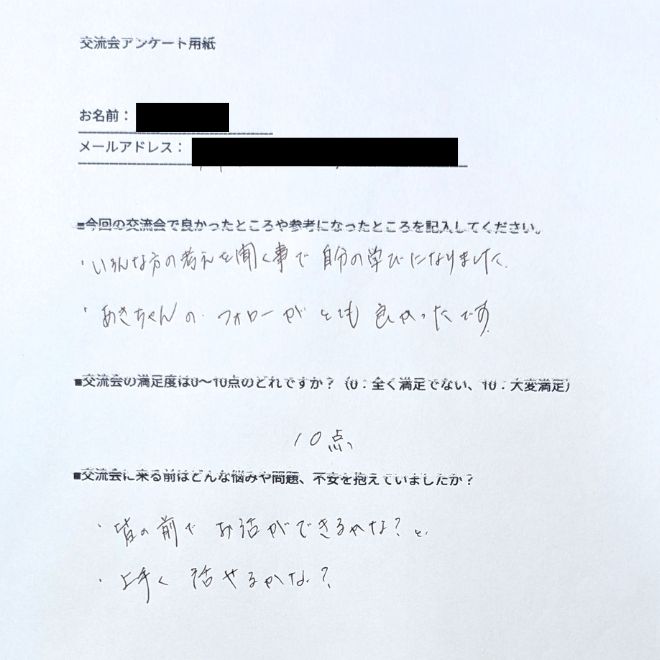 交流会アンケート用紙
お名前：
メールアドレス：
■今回の交流会で良かったところや参考になったところを記入してください。
・いろんな方の考えを聞く事で 自分の学びになりました。
・あきちゃんの フォローが とても 良かったです。
■交流会の満足度は0～10点のどれですか？（0：全く満足でない、10：大変満足）
10点、
■交流会に来る前はどんな悩みや問題、不安を抱えていましたか？
・皆の前で お話ができるかな？と。
・上手く 話せるかな？